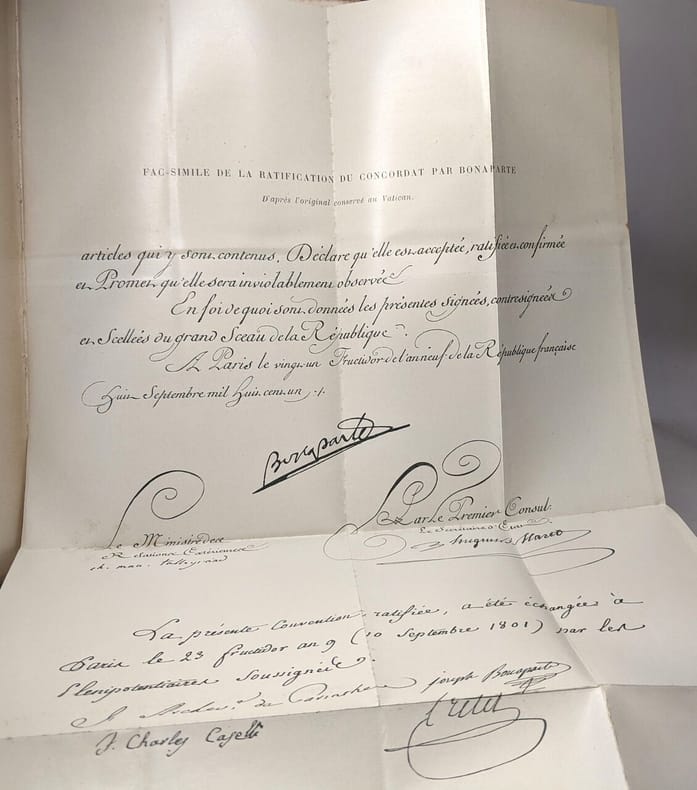 FAC-SIMILE DE LA RATIFICATION DU CONCORDAT PAR BONAPARTE
D'après l'original conservé au Vatican.
articles qui y sont contenus, Déclare qu'elle est acceptée, ratifiée et confirmée
et Promet qu'elle sera inviolablement observée
En foi de quoi sont données les présentes signées, contresignées
et Scellées du grand Sceau de la République.
A Paris le vingt-un Fructidor de l'an neuf de la République française
(huit Septembre mil huit cent un).
Bonaparte
Le Ministre des
Relations Extérieures
ch. mau. talleyrand
Par Le Premier Consul.
Le Secrétaire d'Etat
hugues Maret
La présente Convention, ratifiée, a été échangée à
Paris le 23 fructidor an 9 (10 Septembre 1801) par les
Plenipotentiaires Soussignés.
joseph Bonaparte
Cretet
F. Charles Caselli